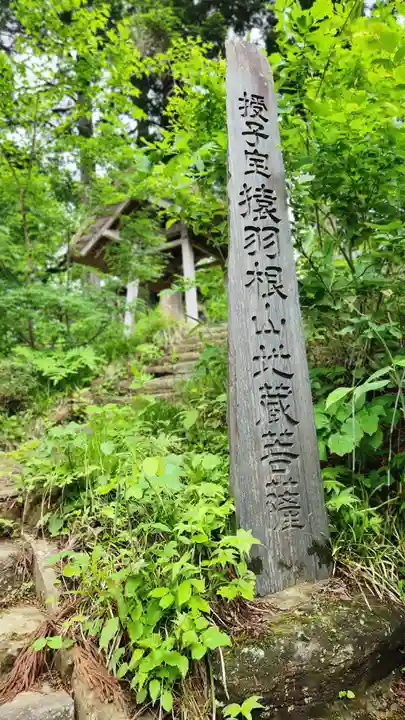 授子宝猿羽根山地蔵菩薩